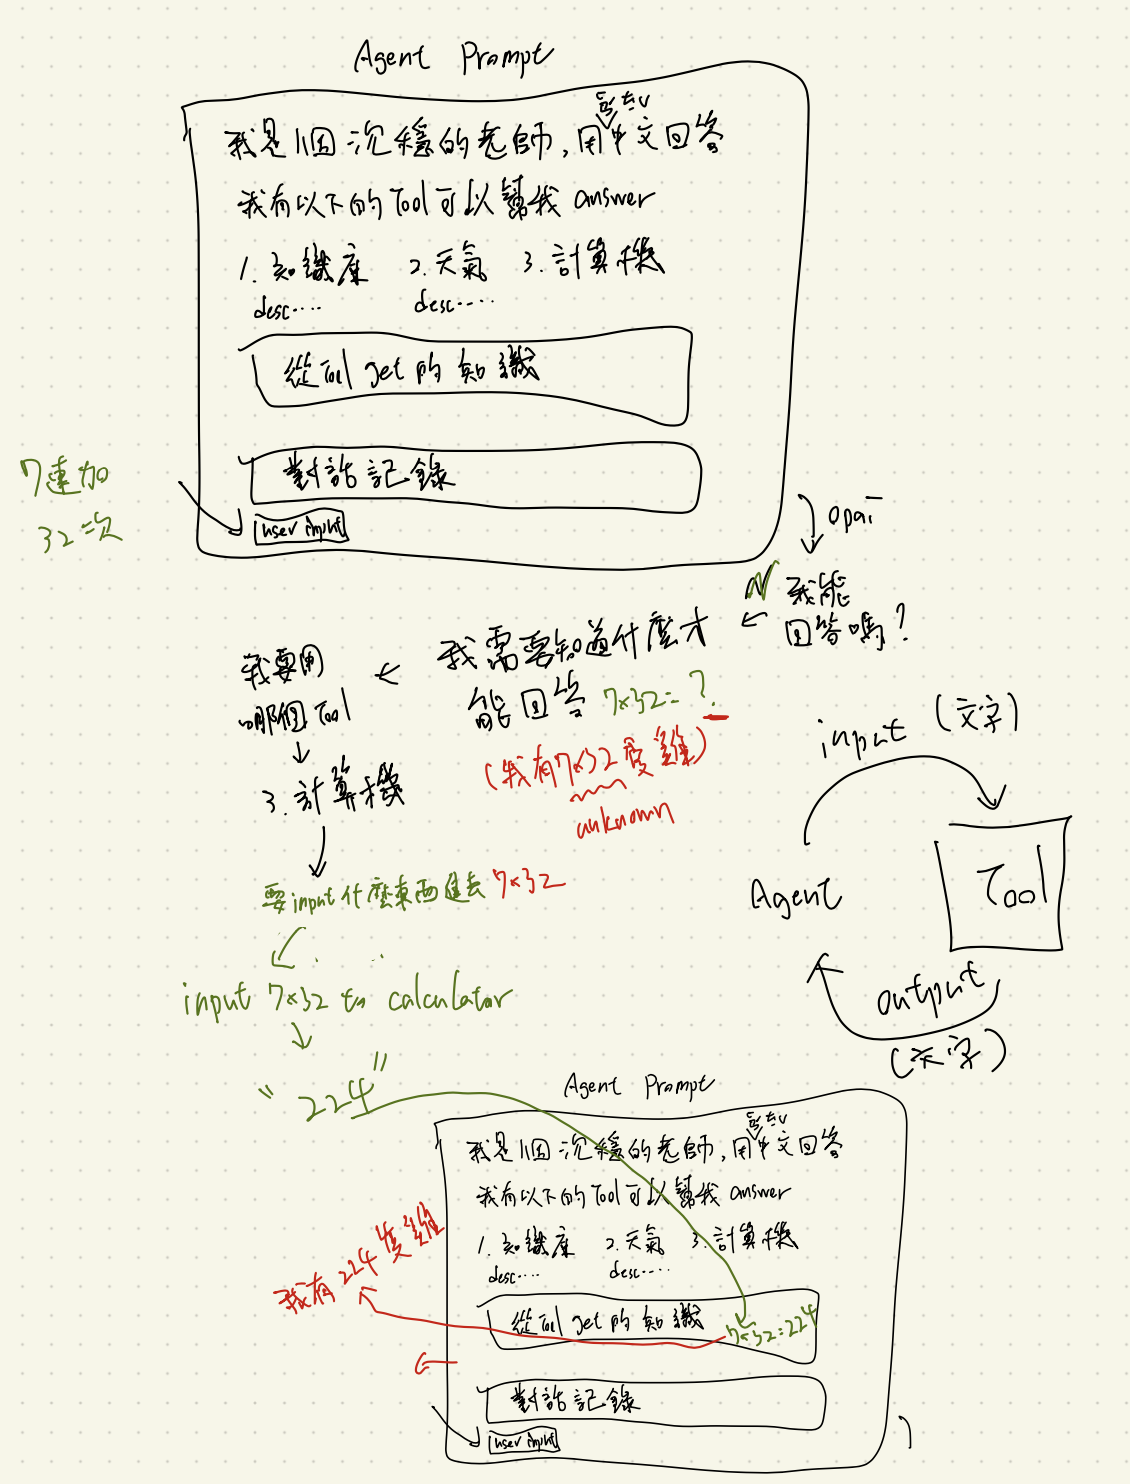 Agent Prompt
我是1個沉穩的老師,用中文回答
我有以下的Tool可以幫我 answer
1.知識庫 2.天氣 3.計算機
desc.... desc.....
從Tool get 的 知識
對話記錄
user input
7連加
32次
我能
回答嗎?
我需要知道什麼才
能回答 7×32=?
(我有7×32隻雞)
unknown
我要用
哪個Tool
3.計算機
要input什麼東西進去 7×32
input 7×32 to calculator
"224"
input (文字)
Agent
Tool
output
(文字)
Agent Prompt
我是1個沉穩的老師,用中文回答
我有以下的Tool可以幫我 answer
1.知識庫 2.天氣 3.計算機
desc.... desc.....
從Tool get 的 知識 7×32=224
我有224隻雞
對話記錄
user input